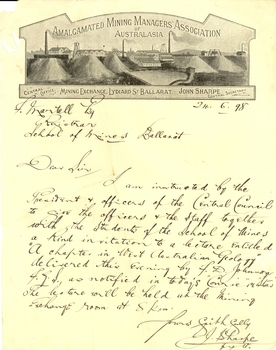 AMALGAMATED MINING MANAGERS' ASSOCIATION
OF
AUSTRALASIA.
CENTRAL OFFICE
MINING EXCHANGE, LYDIARD ST BALLARAT.
JOHN SHARPE,
GENERAL SECRETARY
24.6.98
F. Martell Esq
Registrar
School of Mines Ballarat
Dear Sir
I am instructed by the
President & officers of the Central Council
to give the officers & the Staff together
with the Students of the School of Mines
a kind invitation to a lecture entitled
"A chapter in West Australian Geology"
delivered this evening by
F.G.S, as notified in today's Courier
The lecture will be held at the Mining
Exchange room at 8 p.m.
Yours faithfully
J Sharpe